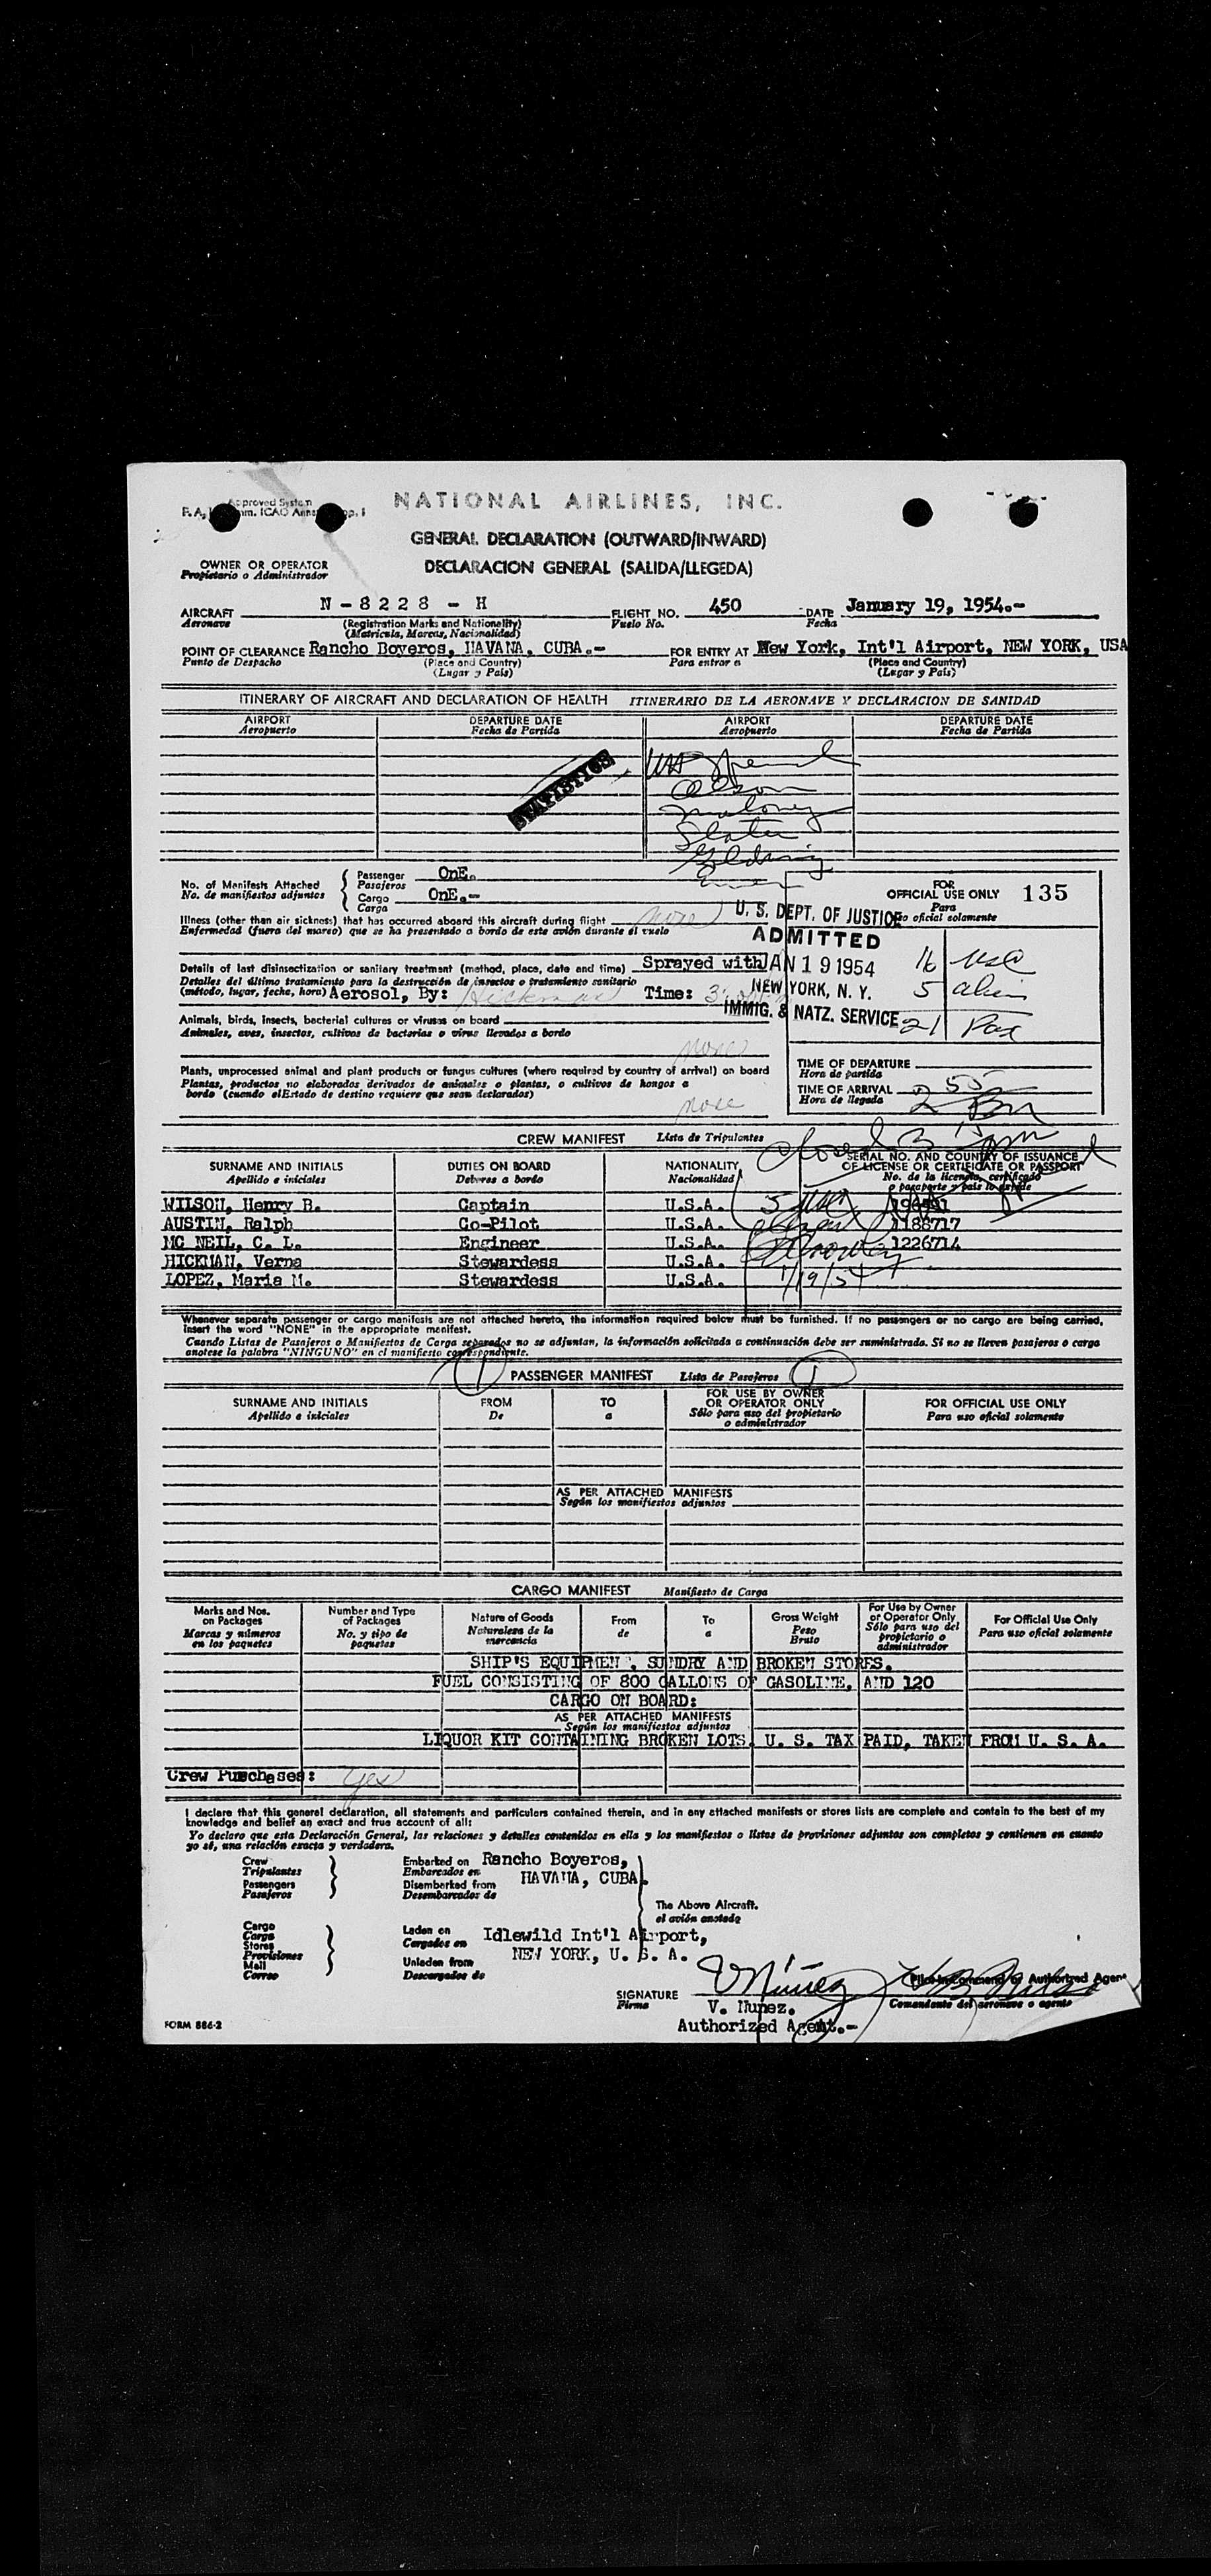 NATIONAL AIRLINES, INC.
GENERAL DECLARATION (OUTWARD/INWARD)
DECLARACION GENERAL (SALIDA/LLEGEDA)
OWNER OR OPERATOR
Propietario o Administrador
AIRCRAFT N - 8 2 2 8 - H FLIGHT NO. 450 DATE January 19, 1954.-
Aeronave (Registration Marks and Nationality) Vuelo No. Fecha
(Matricula, Marcas, Nacionalidad)
POINT OF CLEARANCE Rancho Boyeros, HAVANA, CUBA.- FOR ENTRY AT New York, Int'l Airport, NEW YORK, USA
Punto de Despacho (Place and Country) Para entrar a (Place and Country)
(Lugar y País) (Lugar y País)
ITINERARY OF AIRCRAFT AND DECLARATION OF HEALTH ITINERARIO DE LA AERONAVE Y DECLARACION DE SANIDAD
AIRPORT DEPARTURE DATE AIRPORT DEPARTURE DATE
Aeropuerto Fecha de Partida Aeropuerto Fecha de Partida
STATISTICS
Maloney
Slater
No. of Manifests Attached Passenger OnE.
No. de manifiestos adjuntos Pasajeros
Cargo OnE.-
Carga
FOR
OFFICIAL USE ONLY 135
Para
uso oficial solamente
Illness (other than air sickness) that has occurred aboard this aircraft during flight none
Enfermedad (fuera del mareo) que se ha presentado a bordo de este avión durante él vuelo
U. S. DEPT. OF JUSTICE
ADMITTED
JAN 19 1954
NEW YORK, N. Y.
IMMIG. & NATZ. SERVICE
16 USC
5 alien
21 Pax
Details of last disinsectization or sanitary treatment (method, place, date and time) Sprayed with
Detalles del último tratamiento para la destrucción de insectos o tratamiento sanitario
(método, lugar, fecha, hora) Aerosol, By: Hickman Time:
Animals, birds, insects, bacterial cultures or viruses on board
Animales, aves, insectos, cultivos de bacterias o virus llevados a bordo
none
Plants, unprocessed animal and plant products or fungus cultures (where required by country of arrival) on board
Plantas, productos no elaborados derivados de animales o plantas, o cultivos de hongos a
bordo (cuando elEstado de destino requiere que sean declarados)
none
TIME OF DEPARTURE
Hora de partida
TIME OF ARRIVAL 2 55
Hora de llegada
CREW MANIFEST Lista de Tripulantes
SURNAME AND INITIALS DUTIES ON BOARD NATIONALITY SERIAL NO. AND COUNTRY OF ISSUANCE
OF LICENSE OR CERTIFICATE OR PASSPORT
Apellido e iniciales Deberes a bordo Nacionalidad No. de la licencia, certificado
o pasaporte y país lo expide
WILSON, Henry B. Captain U.S.A.
AUSTIN, Ralph Co-Pilot U.S.A. 1188717
MC NEIL, C. L. Engineer U.S.A. 1226714
HICKMAN, Verna Stewardess U.S.A.
LOPEZ, Maria M. Stewardess U.S.A.
1/19/54
Whenever separate passenger or cargo manifests are not attached hereto, the information required below must be furnished. If no passengers or no cargo are being carried,
insert the word "NONE" in the appropriate manifest.
Cuando Listas de Pasajeros o Manifiestos de Carga separados no se adjuntan, la información solicitada a continuación debe ser suministrada. Si no se lleven pasajeros o carga
anotese la palabra "NINGUNO" en el manifiesto correspondiente.
1 PASSENGER MANIFEST Lista de Pasajeros 1
SURNAME AND INITIALS FROM TO FOR USE BY OWNER OR OPERATOR ONLY FOR OFFICIAL USE ONLY
Apellido e iniciales De a Sólo para uso del propietario o administrador Para uso oficial solamente
AS PER ATTACHED MANIFESTS
Según los manifiestos adjuntos
CARGO MANIFEST Manifiesto de Carga
Marks and Nos. on Packages Number and Type of Packages Nature of Goods From To Gross Weight For Use by Owner or Operator Only For Official Use Only
Marcas y números en los paquetes No. y tipo de paquetes Naturaleza de la mercancia de a Peso Bruto Sólo para uso del propietario o administrador Para uso oficial solamente
SHIP'S EQUIPMENT, SUNDRY AND BROKEN STORES.
FUEL CONSISTING OF 800 GALLONS OF GASOLINE, AND 120
CARGO ON BOARD:
AS PER ATTACHED MANIFESTS
Según los manifiestos adjuntos
LIQUOR KIT CONTAINING BROKEN LOTS. U. S. TAX PAID, TAKEN FROM U. S. A.
Crew Purchases: yes
I declare that this general declaration, all statements and particulars contained therein, and in any attached manifests or stores lists are complete and contain to the best of my
knowledge and belief an exact and true account of all:
Yo declaro que esta Declaración General, las relaciones y detalles contenidos en ella y los manifiestos o listas de provisiones adjuntos son completos y contienen en cuanto
yo sé, una relación exacta y verdadera.
Crew Embarked on Rancho Boyeros,
Tripulantes Embarcados en
Passengers Disembarked from HAVANA, CUBA.
Pasajeros Desembarcados de
The Above Aircraft.
el avión anotado
Cargo Laden on Idlewild Int'l Airport,
Carga Cargados en
Stores NEW YORK, U. S. A.
Provisiones
Mail Unladen from
Correo Descargados de
SIGNATURE V Núñez Pilot in Command or Authorized Agent
Firma V. Nunez. Comandante del aeronave o agente
Authorized Agent.-
FORM 886-2